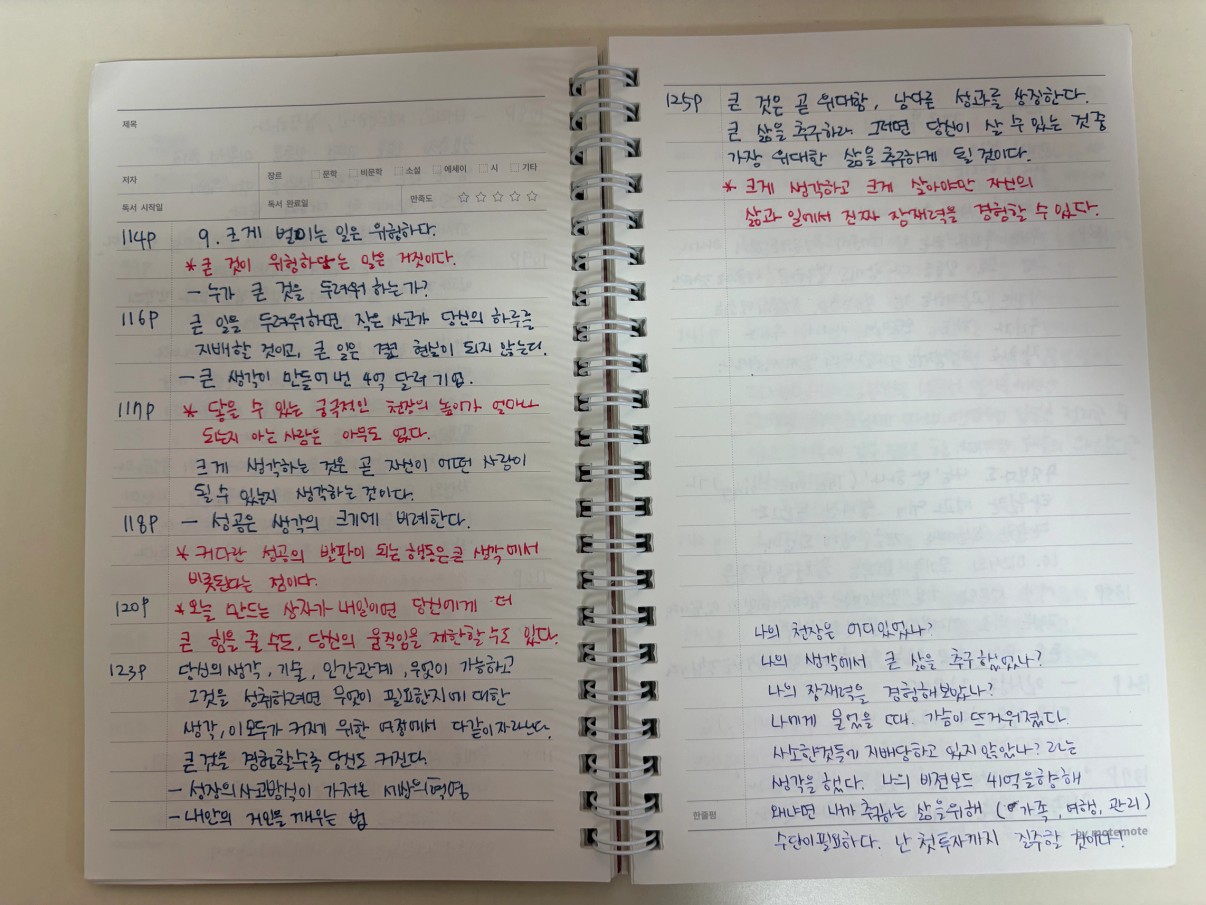 제목
저자
장르 문학 비문학 소설 에세이 시 기타
독서 시작일
독서 완료일
만족도 ☆☆☆☆☆
114P 9. 크게 벌이는 일은 위험하다.
* 큰 것이 위험하다는 말은 거짓이다.
- 누가 큰 것을 두려워 하는가?
116P 큰 일을 두려워하면 작은 사고가 당신의 하루를
지배할 것이고, 큰 일은 결코 현실이 되지 않는다.
- 큰 생각이 만들어 낸 4억 달러 기업.
117P * 닿을 수 있는 궁극적인 천장의 높이가 얼마나
되는지 아는 사람은 아무도 없다.
크게 생각하는 것은 곧 자신이 어떤 사람이
될 수 있는지 생각하는 것이다.
118P - 성공은 생각의 크기에 비례한다.
* 커다란 성공의 발판이 되는 행동은 큰 생각에서
비롯된다는 점이다.
120P * 오늘 만드는 상자가 내일이면 당신에게 더
큰 힘을 줄 수도, 당신의 움직임을 제한할 수도 있다.
123P 당신의 생각, 기술, 인간관계, 무엇이 가능하고
그것을 성취하려면 무엇이 필요한지에 대한
생각, 이 모두가 커지기 위한 여정에서 다같이 자라난다.
큰 것을 경험할수록 당신도 커진다.
- 성장의 사고방식이 가져온
- 내 안의 거인을 깨우는 법
125P 큰 것은 곧 위대함, 남다른 성과를 상징한다.
큰 삶을 추구하라. 그러면 당신이 살 수 있는 것 중
가장 위대한 삶을 추구하게 될 것이다.
* 크게 생각하고 크게 살아야만 자신의
삶과 일에서 진짜 잠재력을 경험할 수 있다.
나의 천장은 어디있었나?
나의 생각에서 큰 삶을 추구했었나?
나의 잠재력을 경험해보았나?
나에게 물었을 때. 가슴이 뜨거워졌다.
사소한것들에 지배당하고 있지 않았나? 라는
생각을 했다. 나의 비전보드 41억을향해
한줄평
왜냐면 내가 추구하는 삶을위해 (가족, 여행, 관리)
수단이필요하다. 난 첫투자까지 질주할 것이다!
by motemote